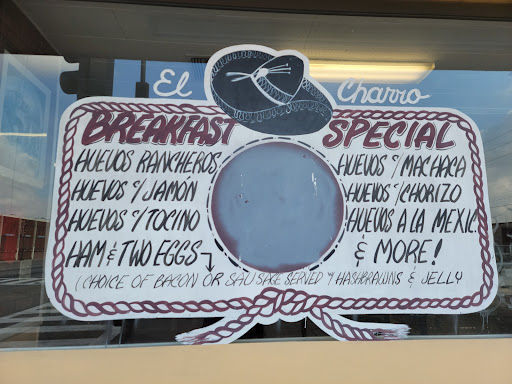 El Charro
BREAKFAST SPECIAL
HUEVOS RANCHEROS
HUEVOS c/JAMÓN
HUEVOS c/TOCINO
HAM & TWO EGGS
HUEVOS c/MACHACA
HUEVOS c/CHORIZO
HUEVOS A LA MEXIC.
& MORE!
(CHOICE OF BACON OR SAUSAGE SERVED y HASHBROWNS & JELLY